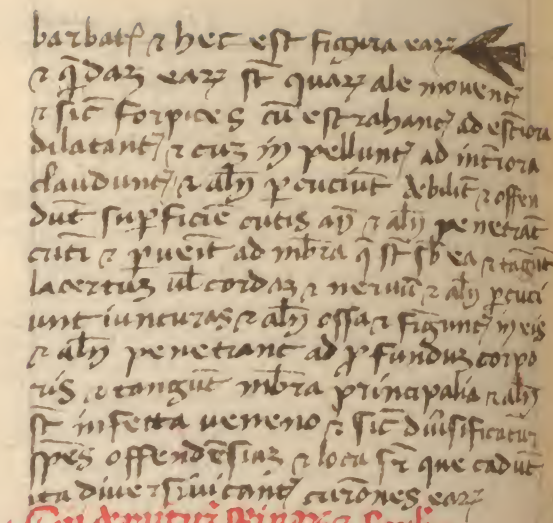 barbatꝝ ⁊ hec est figura earꝝ
⁊ q̄daꝫ earꝫ st̄ quaꝝ ale mouent᷑
⁊ sic̄ forpices cū estrahant᷑ ad est̄iora
dilatant᷑ ⁊ cuꝫ ī pellunt᷑ ad int̄iora
claudunt᷑ ⁊ alī ꝑcuciūt debilit᷑ ⁊ offen
dūt suꝑficiē cutis aī ⁊ alī penetrāt
cutī ⁊ ꝑueīt ad mb̄ra q̄ st̄ sb̄ ea ⁊ tagūt
lacertuꝫ ul̄ cordaꝫ ⁊ neruū ⁊ alī ꝑcuci
unt iuncturas ⁊ alī ossa ⁊ figunt᷑ ī eis
⁊ alī penetrant ad ꝓfunduꝫ corpo
ris ⁊ tangūt mb̄ra principalia ⁊ alī
st̄ infecta ueneno ⁊ sic̄ diuīsificatur
sp̄es offendēsiaꝫ ⁊ loca sr̄ que cadūt
ita diuersiuicant᷑ curōnes earꝫ